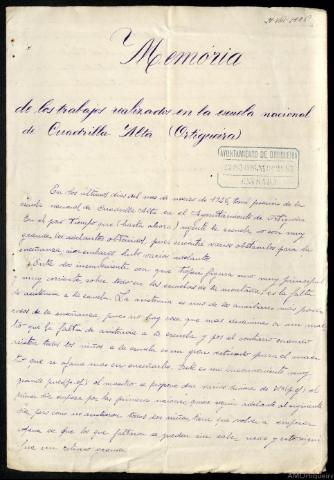 Memoria
de los trabajos realizados en la escuela nacional
de Cuadrilla Alta (Ortigueira)
AYUNTAMIENTO DE ORTIGUEIRA
ENTRADA
En los últimos días del mes de marzo de 1926, tomé posesión de la
escuela nacional de Cuadrilla Alta en el Ayuntamiento de Ortigueira
En el poco tiempo que (hasta ahora) regenté la escuela no son muy
grandes los adelantos obtenidos, pues encontré varios obstáculos para la
enseñanza
Entre los inconvenientes con que topé figura uno muy principal
y muy corriente sobre todo en las escuelas de la montaña, es la falta
de asistencia a la escuela. La asistencia es uno de los auxiliares más pode-
rosos de la enseñanza, pues no hay cosa que más desanime a un maes-
tro que la falta de asistencia a la escuela y por el contrario cuando
asisten todos los niños a la escuela es un gran activador para el maes-
tro que se afana más en enseñarles. Este es un inconveniente muy
grande
primer día empieza por las primeras nociones para seguir adelante al siguiente
día, pero como no asistieron todos los niños, tiene que volver a empezar
afin de que los que faltaron se queden sin saber nada y esto signi-
fica un atraso grande
AMOrtigueira